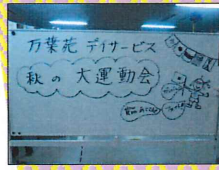 万葉苑 デイサービス
秋の 大運動会